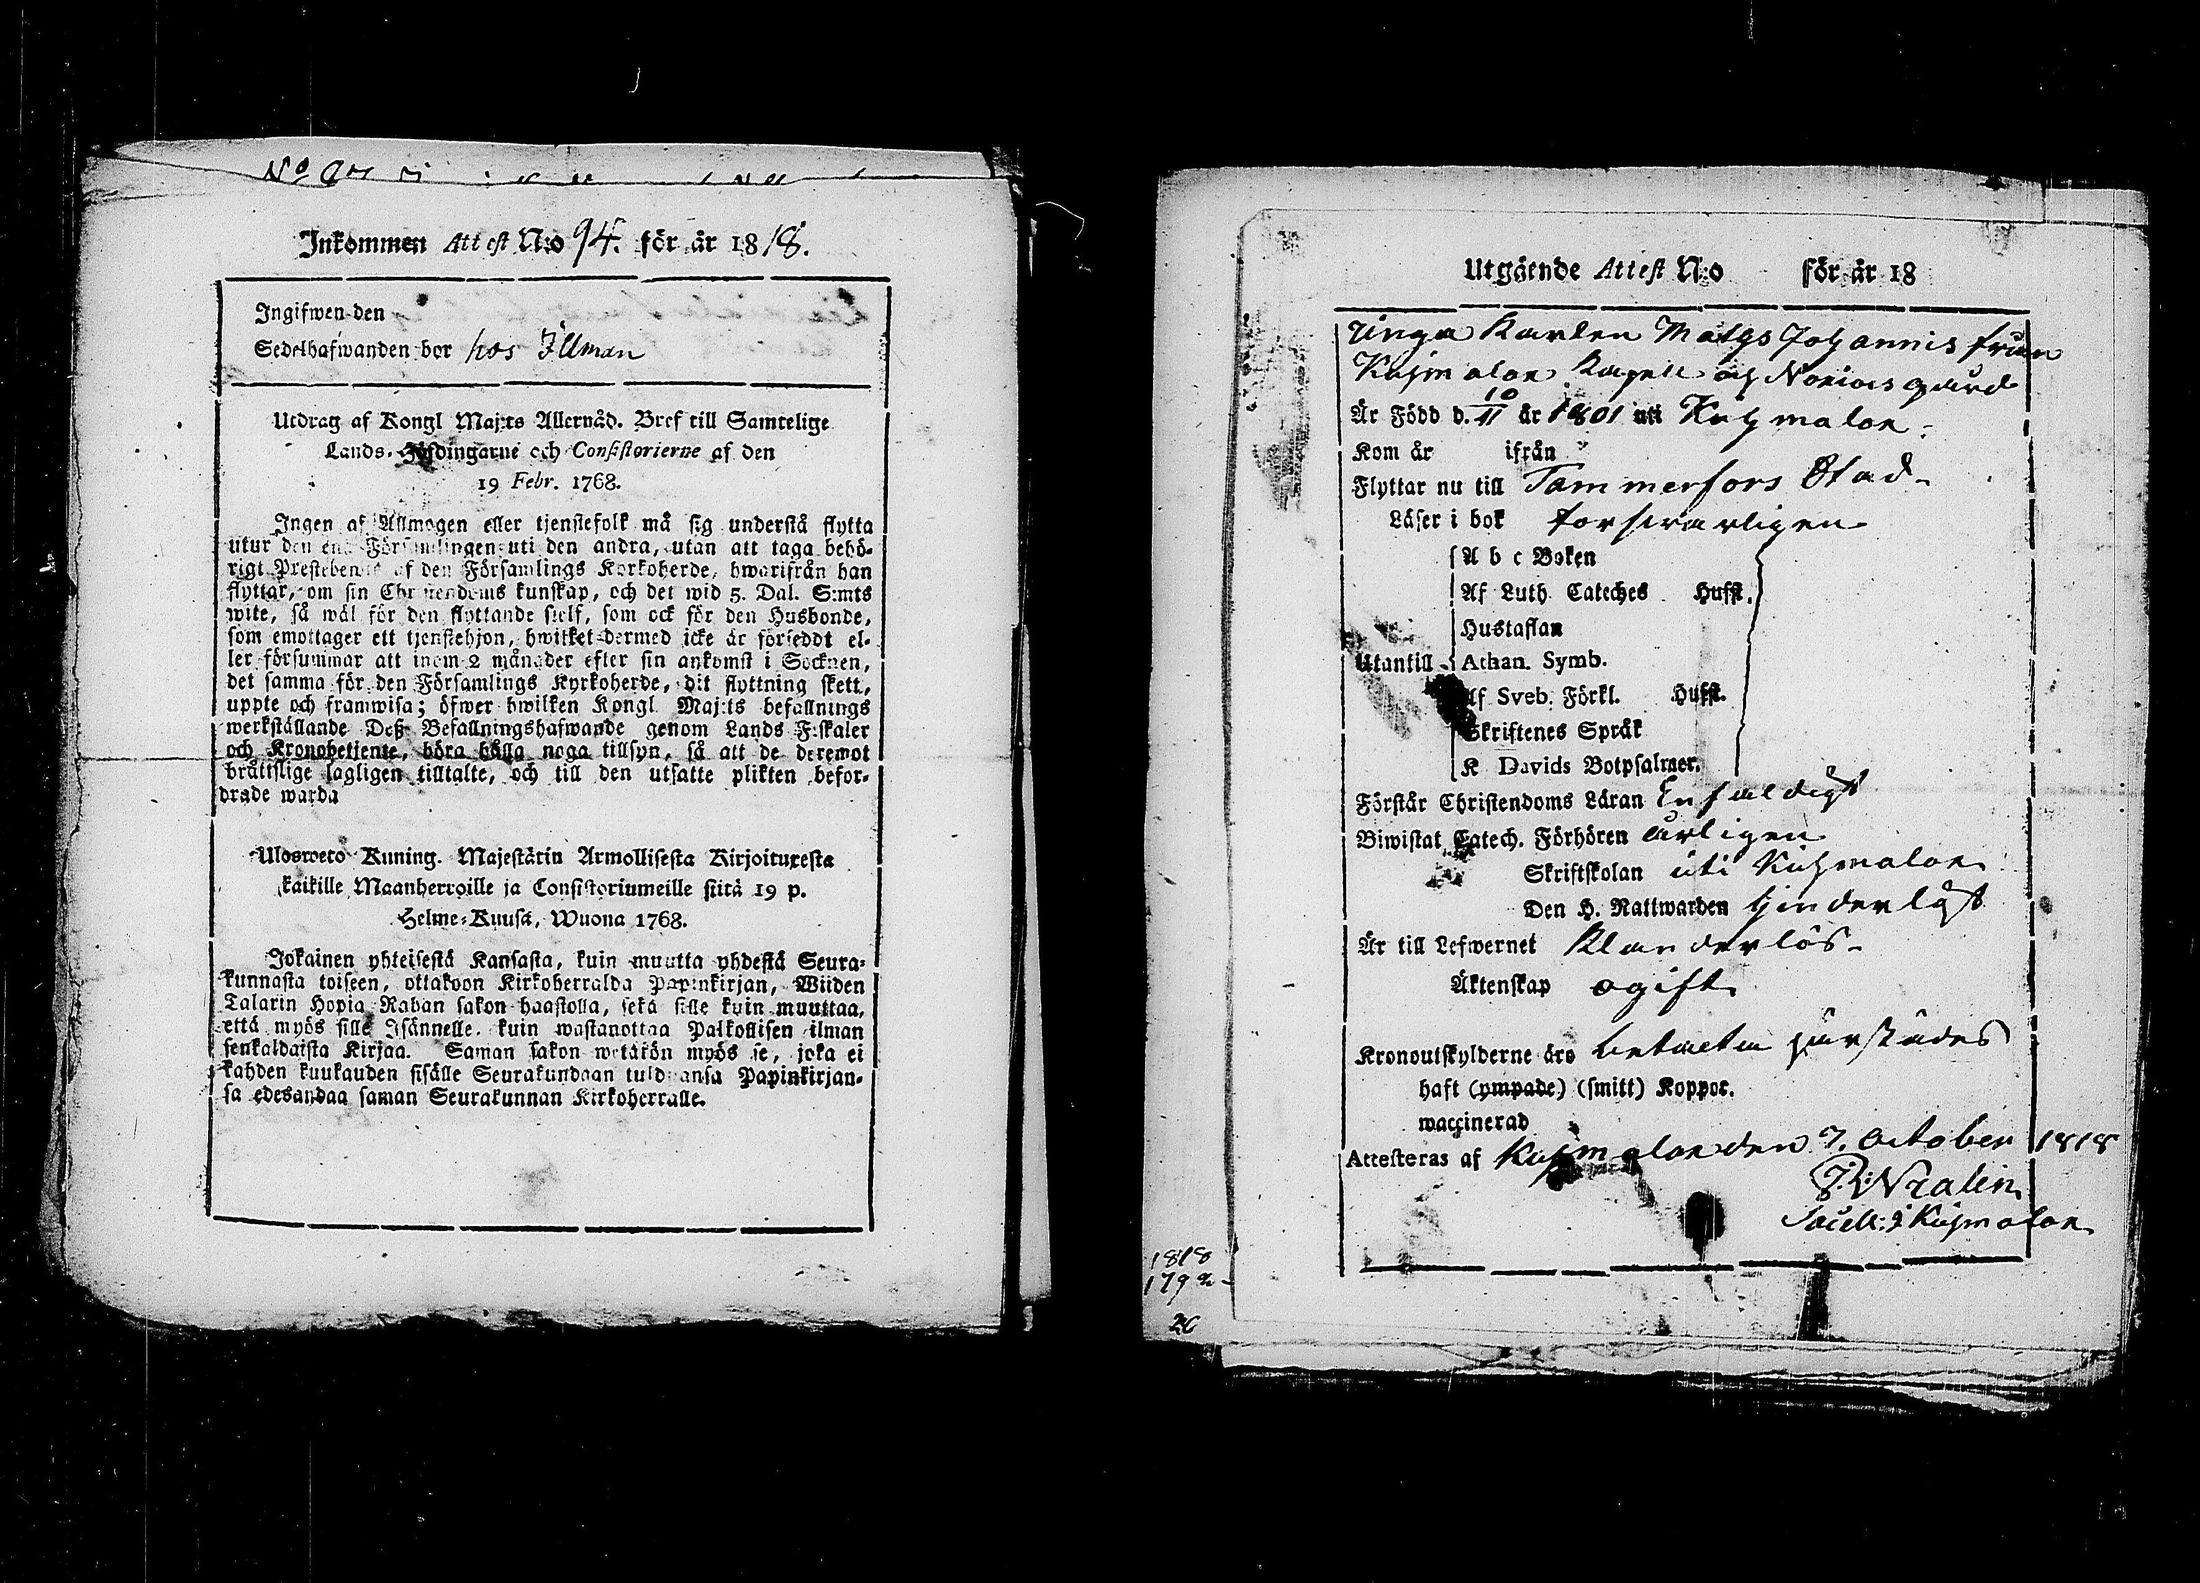 Inkommen Attest N:o 94. för år 1818.
Ingifwen den
Sedelhafwanden bor hos Illman
Utdrag af Kongl Maj:ts Allernåd. Bref till Samtelige
Lands-Höfdingarne och Consistorierne af den
19 Febr. 1768.
Ingen af Allmogen eller tjenstefolk må sig understå flytta
utur den ena Församlingen uti den andra, utan att taga behö-
rigt Prestebewis af den Församlings Kyrkoherde, hwarifrån han
flyttar, om sin Christendoms kunskap, och det wid 5. Dal. S:mts
wite, så wäl för den flyttande sielf, som ock för den Husbonde,
som emottager ett tjenstehjon, hwilket dermed icke är försedt el-
ler försummar att inom 2 månader efter sin ankomst i Socknen,
det samma för den Församlings Kyrkoherde, dit flyttning skett,
uppte och framwisa; öfwer hwilken Kongl Maj:ts befallnings
werkställande Deß Befallningshafwande genom Lands Fiskaler
och Kronobetjente, böra hålla noga tillsyn, så att de deremot
bråttslige lagligen tilltalte, och till den utsatte plikten befor-
drade warda
Ulosweto Kuning. Majestätin Armollisesta Kirjoituxesta
kaikille Maanherroille ja Consistoriumeille siitä 19 p.
Helme-Kuusa, Wuona 1768.
Jokainen yhteisestä Kansasta, kuin muutta yhdestä Seura-
kunnasta toiseen, ottakoon Kirkoherralda Papinkirjan, Wiiden
Talarin Hopia Rahan sakon haastolla, sekä sille kuin muuttaa,
että myös sille Isännelle, kuin wastanottaa Palkollisen ilman
senkaldaista Kirjaa. Saman sakon wetäkön myös se, joka ei
kahden kuukauden sisälle Seurakundaan tulduansa Papinkirjan-
sa edesandaa saman Seurakunnan Kirkoherralle.
Utgående Attest N:o för år 18
Unga Karlen Matys Johannis från
Kuhmalax Kapell och gård
Är Född d. 10/11 år 1801 uti Kuhmalax
Kom år ifrån
Flyttar nu till Tammerfors Stad
Läser i bok forswarligen
A b c Boken
Af Luth Cateches Husst.
Hustaflan
Utantill Athan. Symb.
Af Sveb. Förkl. Husst.
Skriftenes Språk
K Davids Botpsalmer.
Förstår Christendoms Läran Enfaldigt
Biwistat Catech. Förhören årligen
Skriftskolan uti Kuhmalax
Den H. Nattwarden hinderlöst
Är till Lefwernet Klanderlös
Äktenskap ogift
Kronoutskylderne äro betalta härstädes
haft (ympade) (smitt) Koppor.
waccinerad
Attesteras af Kuhmalax den 7. October 1818
Sacell: i Kuhmalax
1818
1792